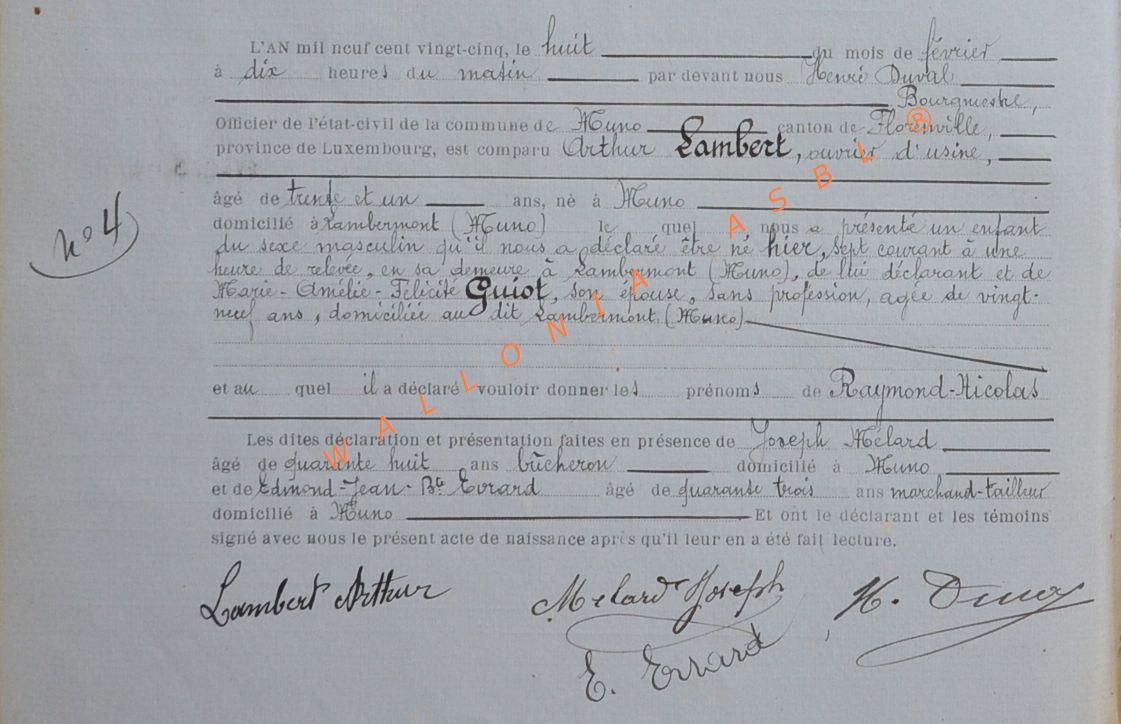 L'AN mil neuf cent vingt-cinq, le huit du mois de février
à dix heures du matin par devant nous Henri Duval
Bourgmestre,
Officier de l'état-civil de la commune de Muno canton de Florenville,
province de Luxembourg, est comparu Arthur Lambert, ouvrier d'usine,
âgé de trente et un ans, nè à Muno
No 4
domicilié à Lambermont (Muno) le quel nous a présenté un enfant
du sexe masculin qu'il nous a déclaré être né hier, sept courant à une
heure de relevée, en sa demeure à Lambermont (Muno), de lui déclarant et de
Marie-Amélie-Félicité Guiot, son épouse, sans profession, agée de vingt-
neuf ans, domiciliée au dit Lambermont (Muno)
et au quel il a déclaré vouloir donner les prénoms de Raymond-Nicolas
Les dites déclaration et présentation faites en présence de Joseph Mélard
âgé de quarante huit ans bûcheron domicilié à Muno,
et de Edmond-Jean-Bte Evrard âgé de quarante trois ans marchand-tailleur
domicilié à Muno Et ont le déclarant et les témoins
signé avec nous le présent acte de naissance après qu'il leur en a été fait lecture.
Lambert Arthur Melard Joseph H. Duval
E. Evrard
WALLONIA ASBL ®